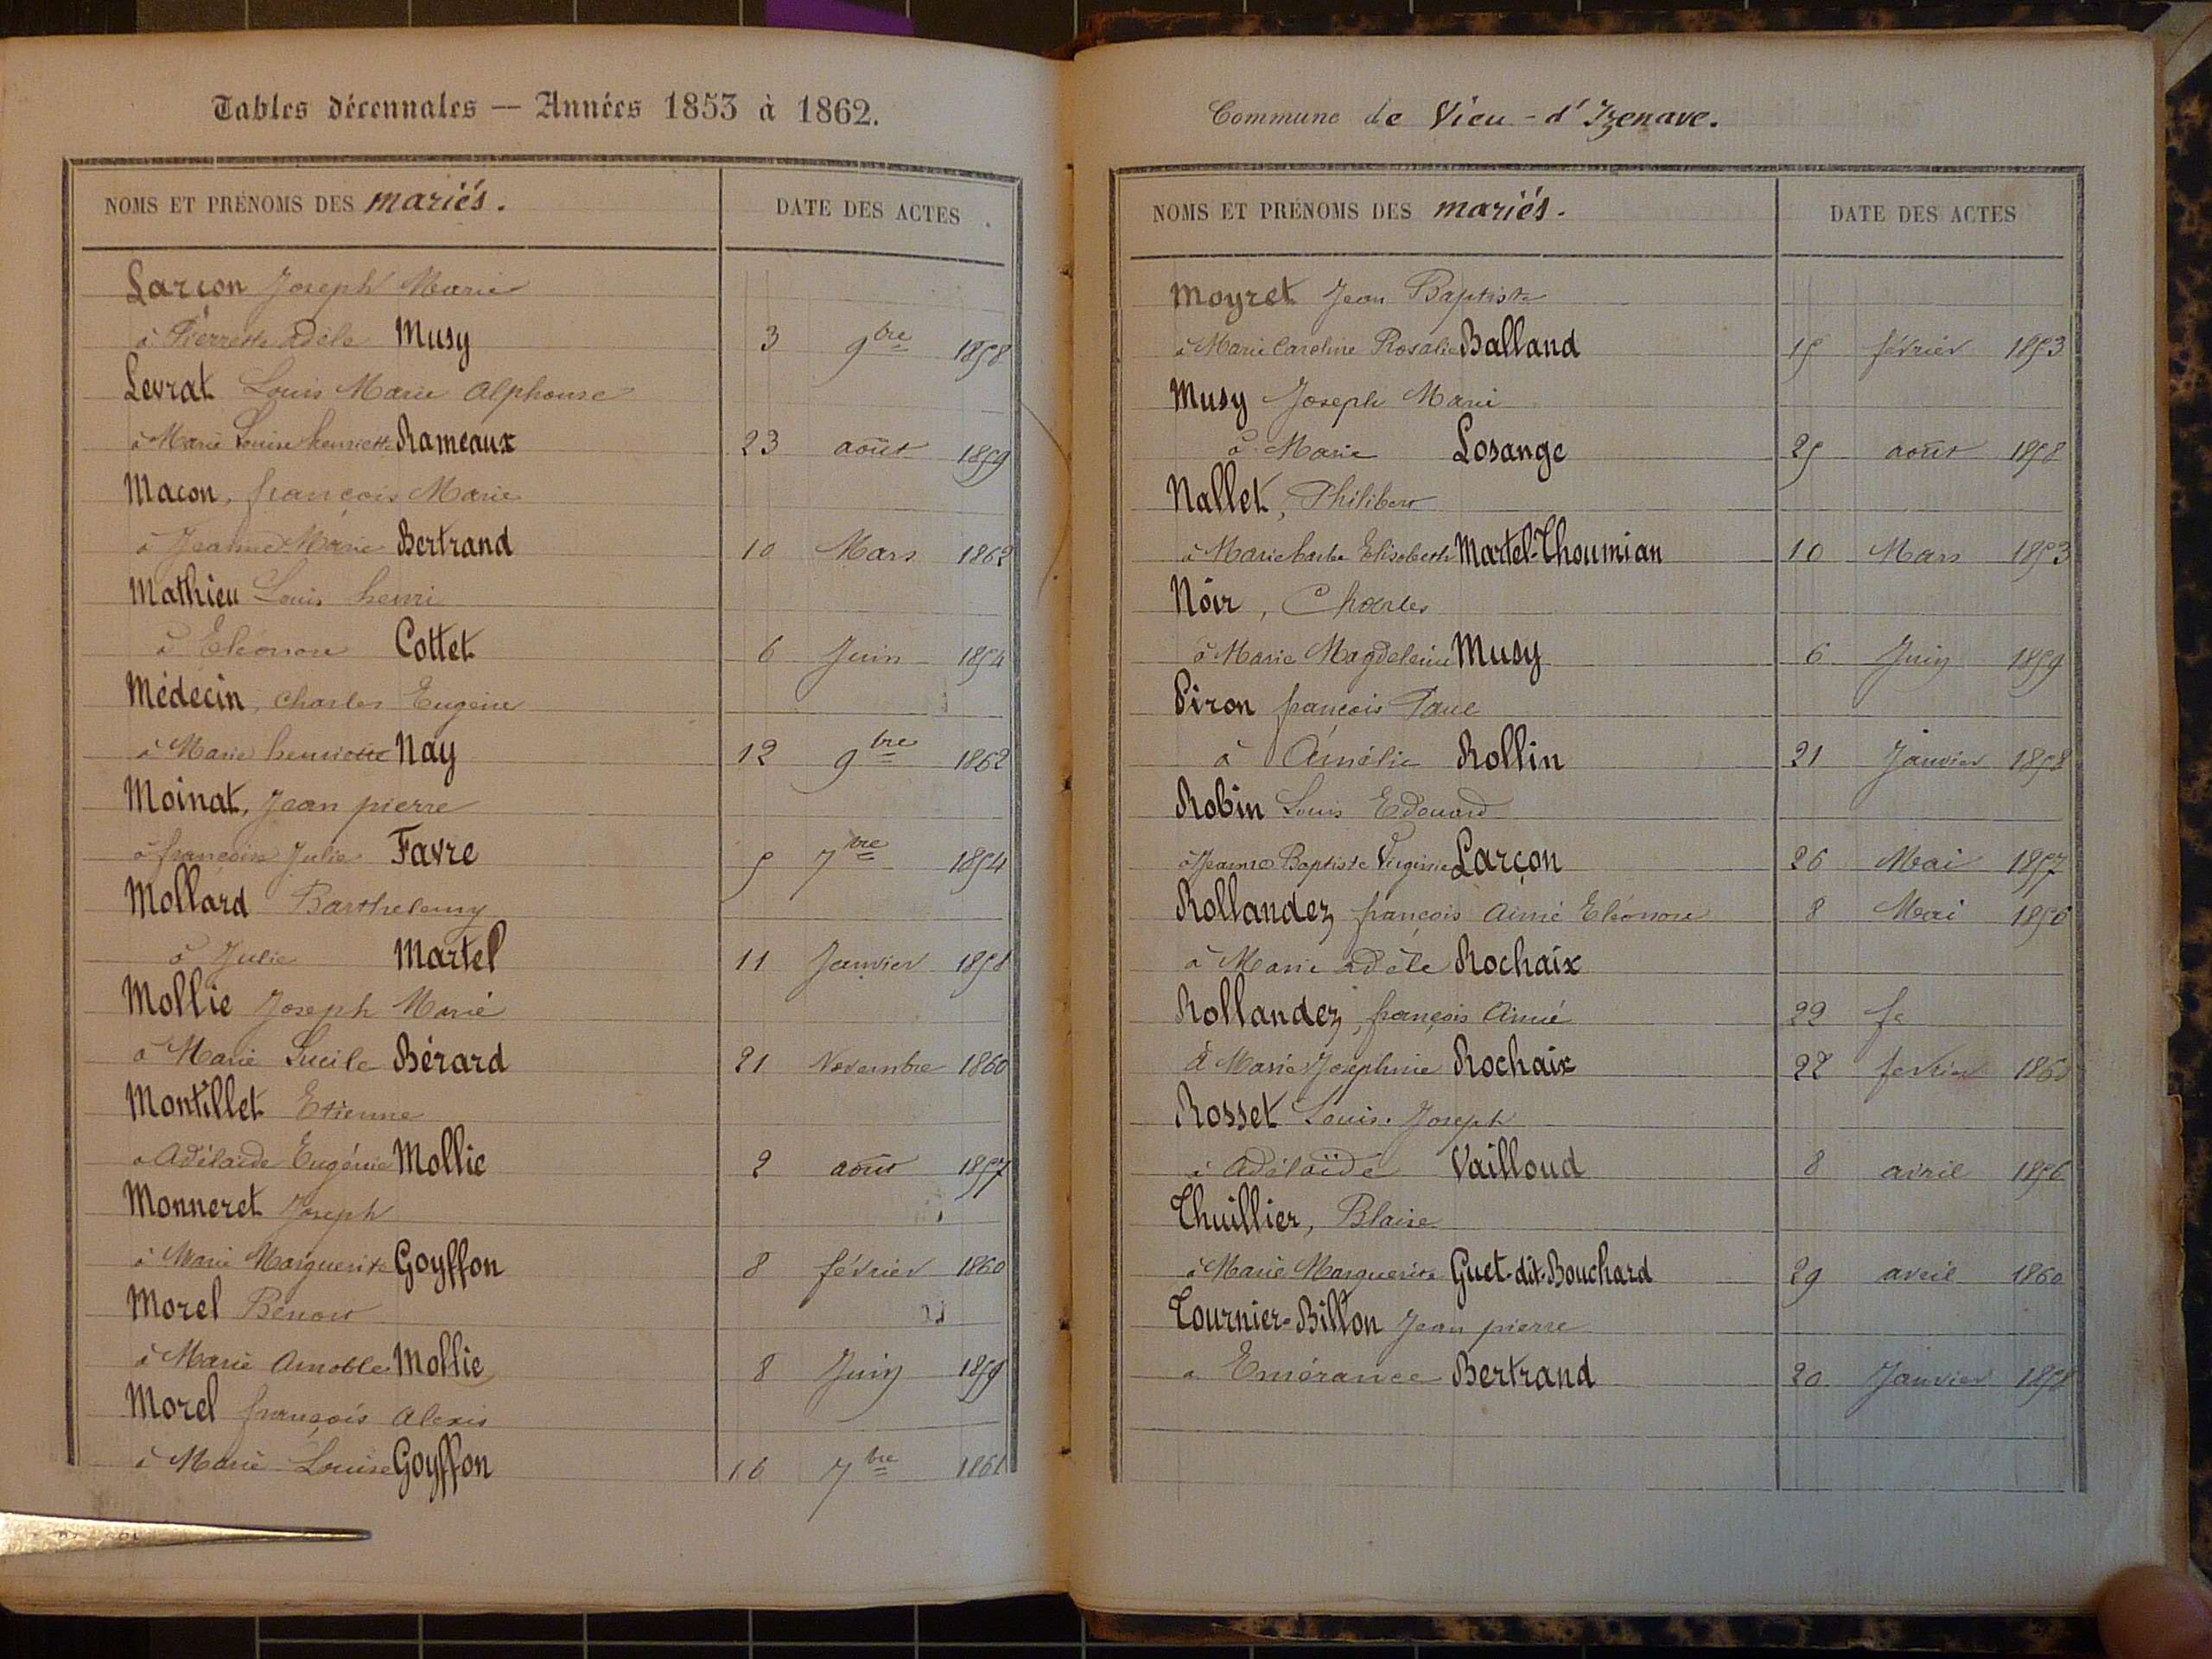 Tables décennales — Années 1853 à 1862.
NOMS ET PRÉNOMS DES mariés. DATE DES ACTES
Larçon Joseph Marie
à Pierrette adèle Musy 3 9bre 1858
Levrat Louis Marie Alphonse
à Marie Louise henriette Rameaux 23 août 1859
Macon, françois Marie
à Jeanne Marie Bertrand 10 Mars 1862
Mathieu Louis henri
à Eléonore Cottet 6 Juin 1854
Médecin, Charles Eugène
à Marie henriette Nay 12 9bre 1862
Moinat, Jean pierre
à françoise Julie Favre 5 7bre 1854
Mollard Barthelemy
à Julie Martel 11 Janvier 1858
Mollie Joseph Marie
à Marie Lucile Bérard 21 Novembre 1860
Montillet Etienne
à Adélaïde Eugénie Mollie 2 août 1857
Monneret Joseph
à Marie Marguerite Goyffon 8 février 1860
Morel Benoit
à Marie Amable Mollie 8 Juin 1859
Morel françois Alexis
à Marie Louise Goyffon 16 7bre 1861
Commune de Vieu-d'Izenave.
NOMS ET PRÉNOMS DES mariés. DATE DES ACTES
Moyret Jean Baptiste
à Marie Caroline Rosalie Balland 15 février 1853
Musy Joseph Marie
à Marie Losange 25 août 1858
Nallet, Philibert
à Marie Elisabeth Martel-Thoumian 10 Mars 1853
Noir, Charles
à Marie Magdeleine Musy 6 Juin 1859
Piron françois Paul
à Amélie Rollin 21 Janvier 1858
Robin Louis Edouard
à Jeanne Baptiste Virginie Larçon 26 Mai 1857
Rollandez françois Aimé Eléonore 8 Mai 1856
à Marie adèle Rochaix
Rollandez, françois Aimé 22 fe
à Marie Josephine Rochaix 22 fevrier 1860
Rosset Louis Joseph
à Adélaïde Vailloud 8 avril 1856
Thuillier, Blaise
à Marie Marguerite Guet-dit-Bouchard 29 avril 1860
Tournier-Billon Jean pierre
à Emérance Bertrand 20 Janvier 1858